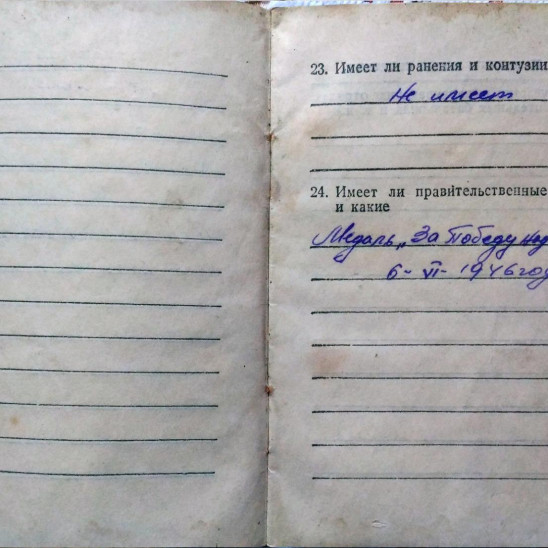 23. Имеет ли ранения и контузии
Не имеет
24. Имеет ли правительственные
и какие
Медаль „За Победу над
6-VI-1946 год